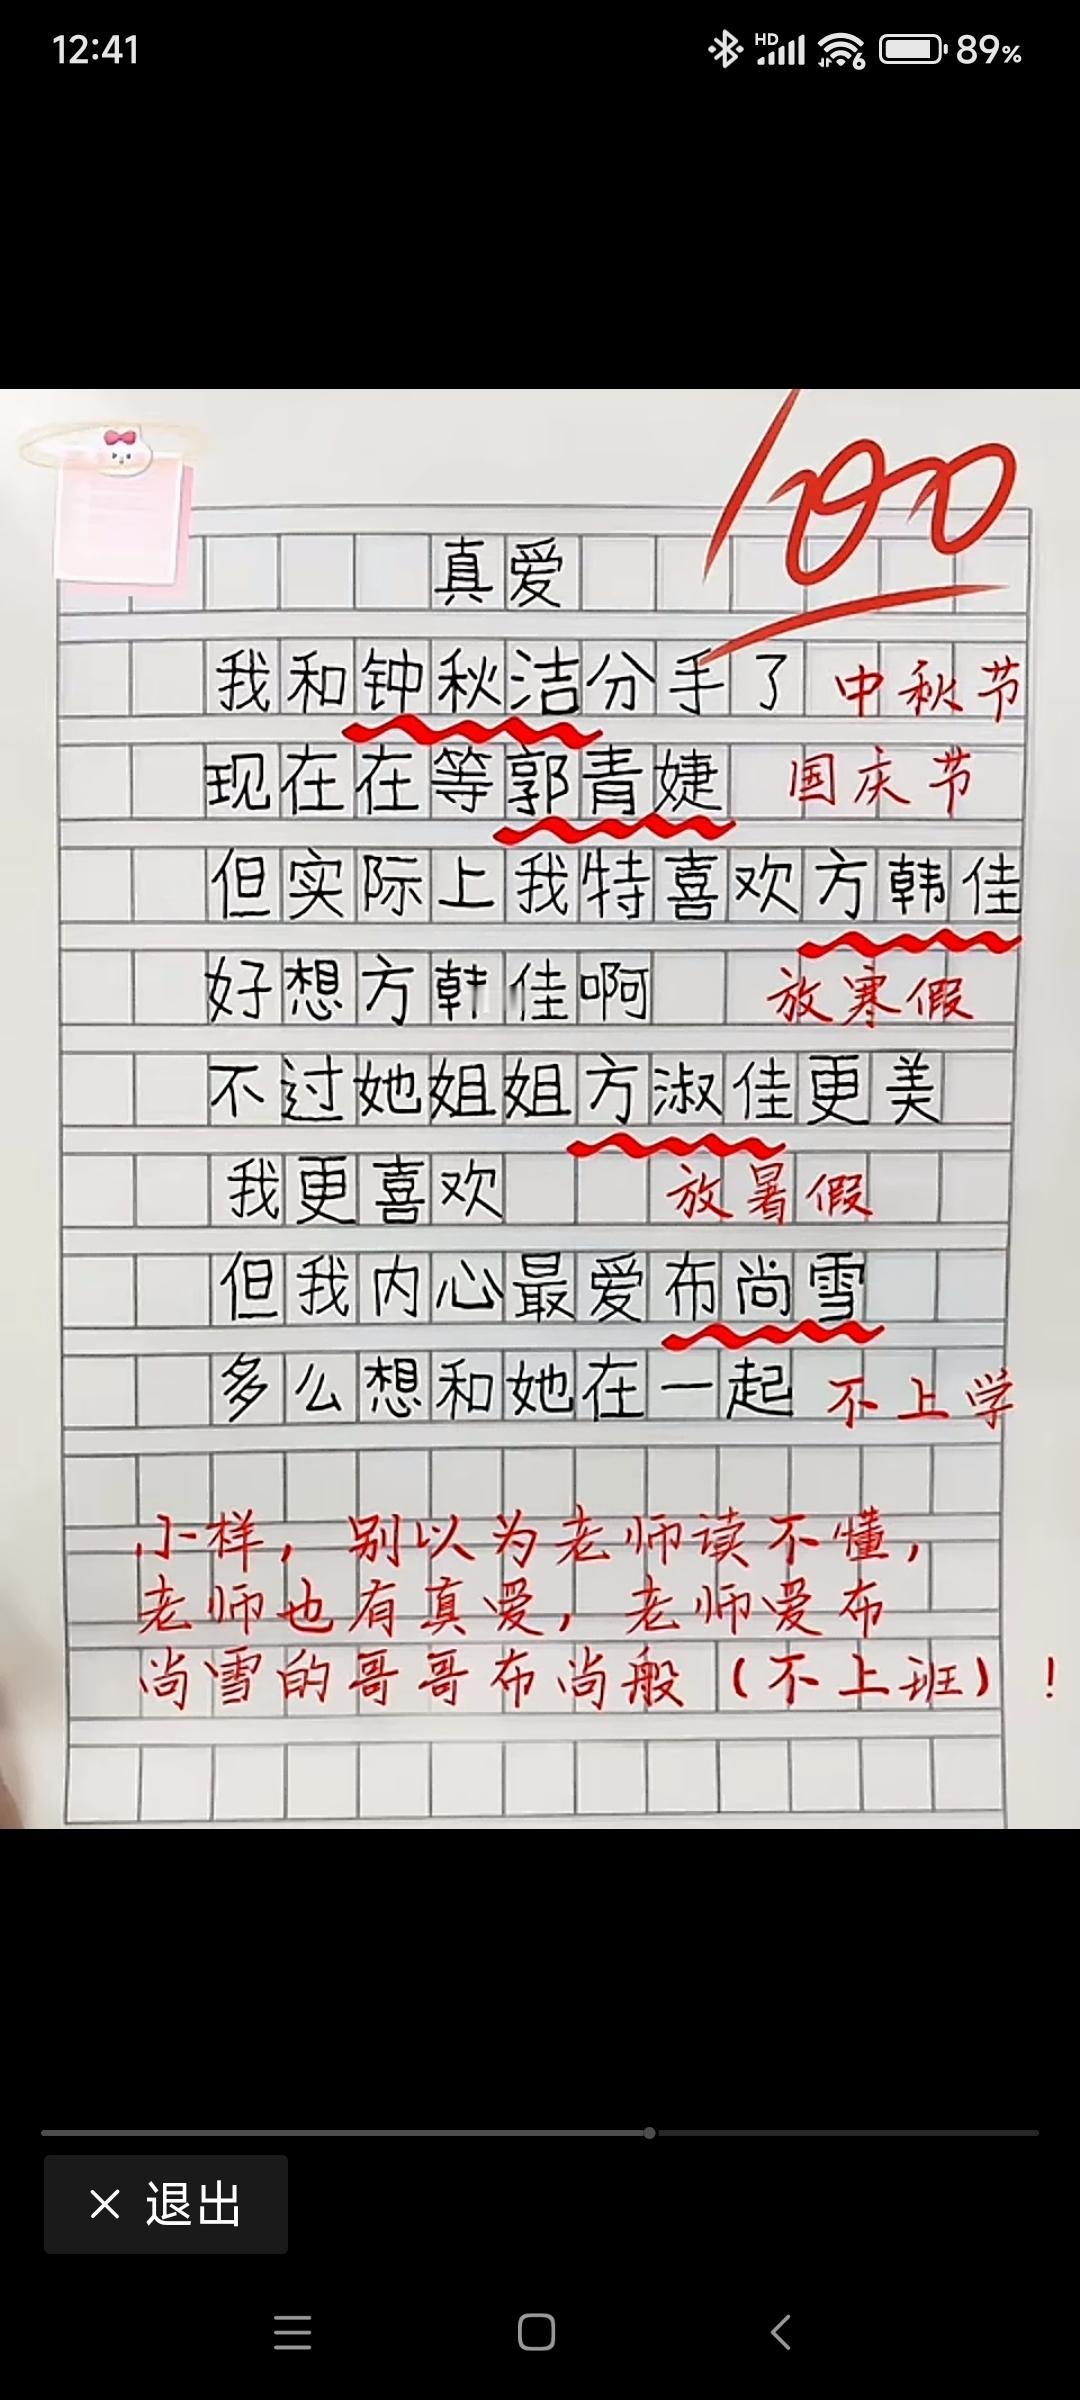 12:41
HD 6 89%
100
真爱
我和钟秋洁分手了 中秋节
现在在等郭青婕 国庆节
但实际上我特喜欢方韩佳
好想方韩佳啊 放寒假
不过她姐姐方淑佳更美
我更喜欢 放暑假
但我内心最爱布尚雪
多么想和她在一起 不上学
小样，别以为老师读不懂，
老师也有真爱，老师爱布
尚雪的哥哥布尚般（不上班）！
退出